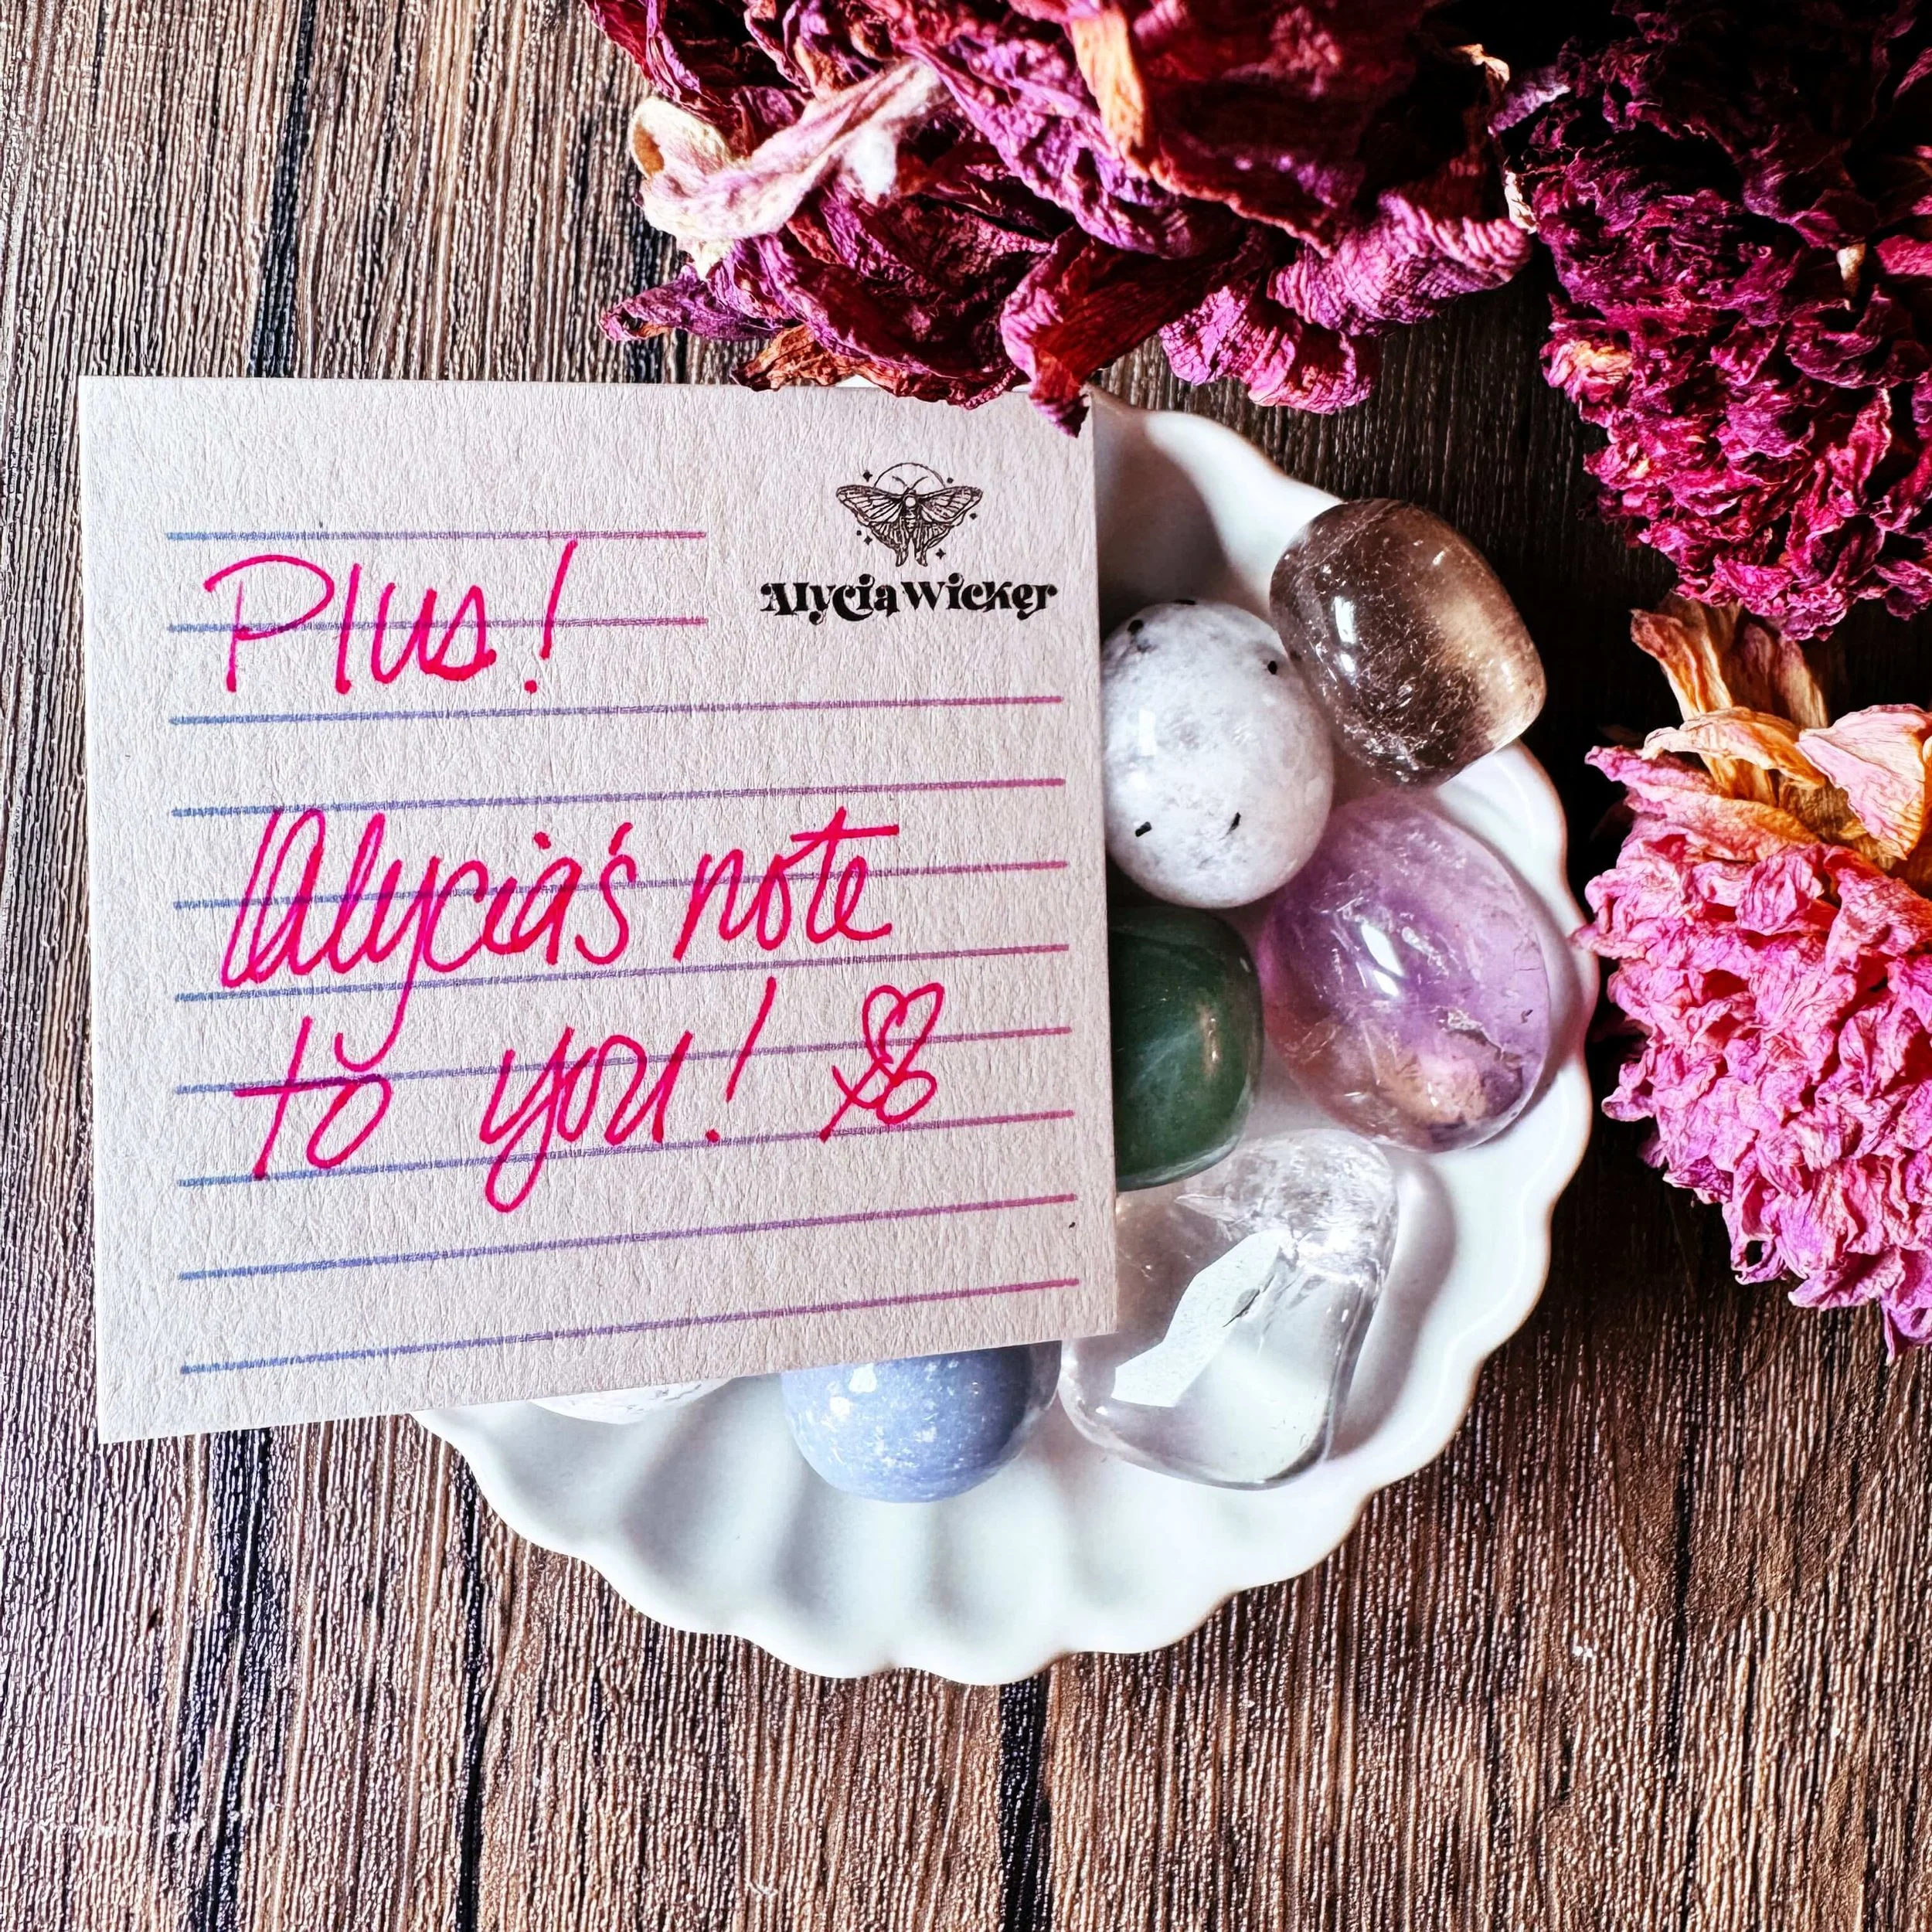 Alycia Wicker
Plus!
Alycia's note
to you!